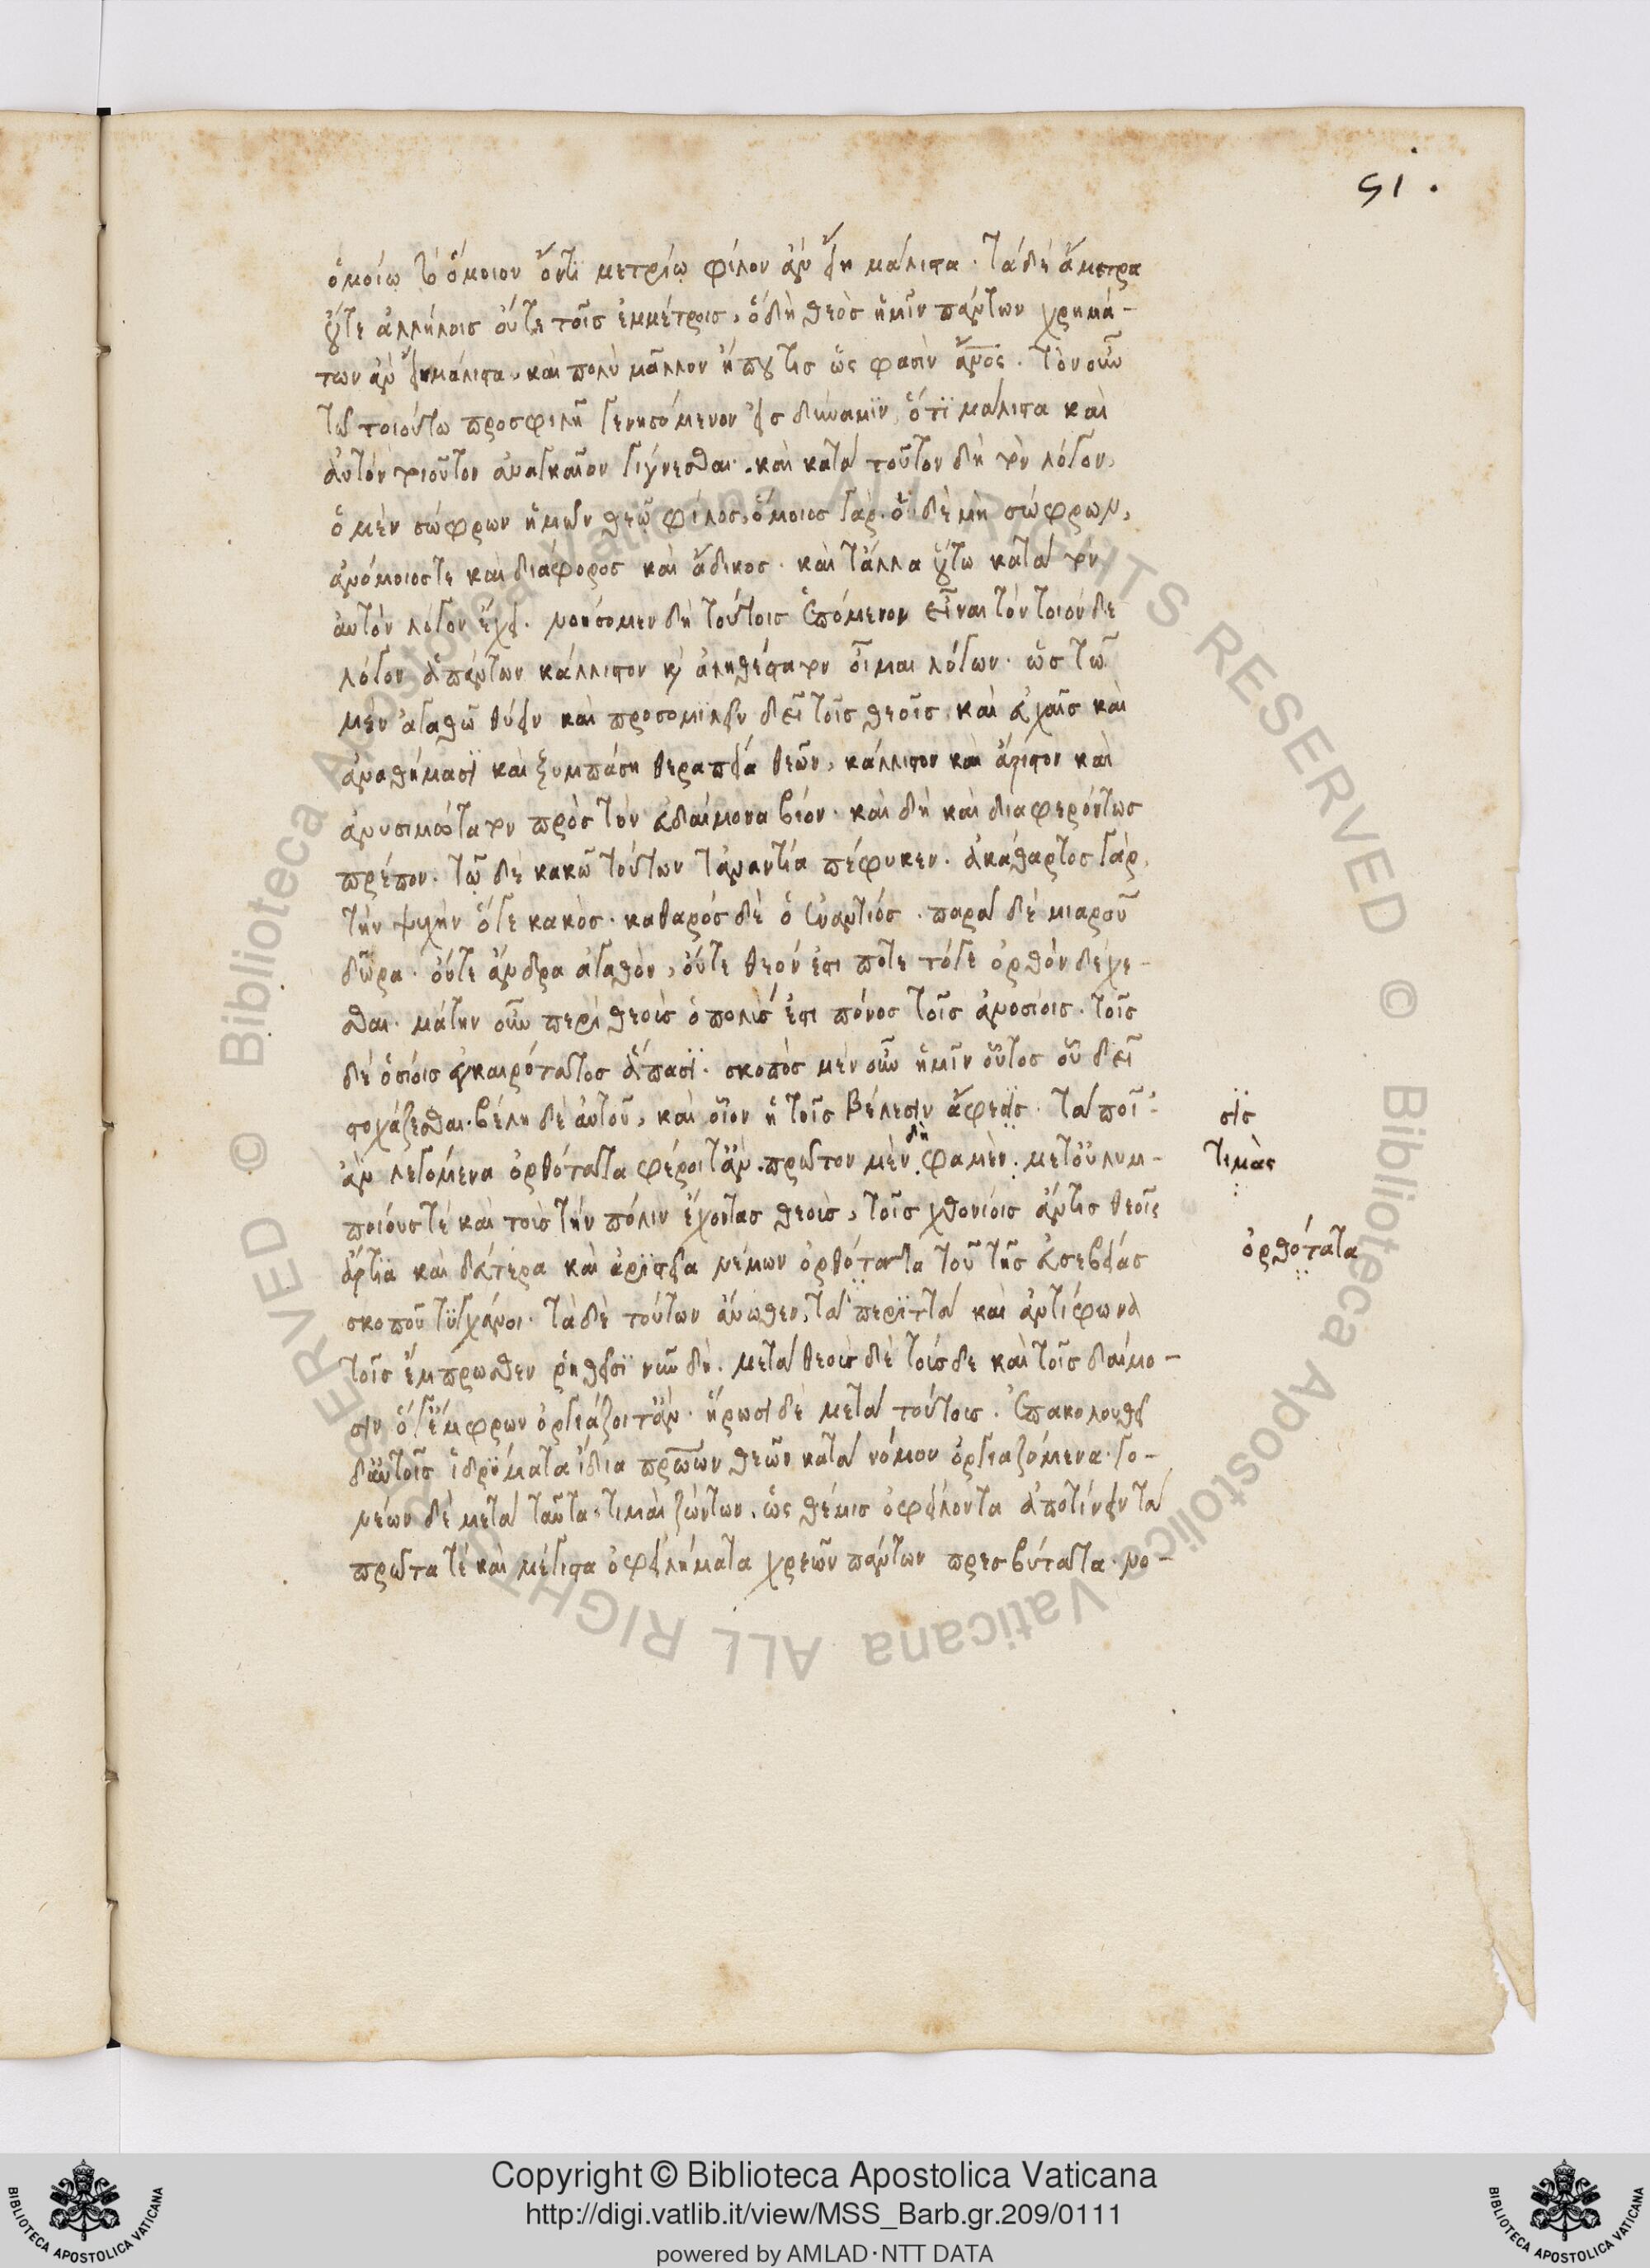 51.
ὁμοίω τὸ ὅμοιον ὄντι μετρίω φίλον ἂν εἴη μάλιστα. τὰ δὲ ἄμετρα
οὔτε ἀλλήλοις οὔτε τοῖς ἐμμέτροις, ὁ δὴ θεὸς ἡμῖν πάντων χρημά-
των ἂν εἴη μάλιστα, καὶ πολὺ μᾶλλον ἤπου τις ὥς φασὶν ἄνος. τὸν οὖν
τῶ τοιούτω προσφιλῆ γενησόμενον εἰς δύναμϊν ὅτϊ μάλιστα καὶ
ἀυτὸν τοιοῦτον ἀναγκαῖον γίγνεσθαι. καὶ κατὰ τοῦτον δὴ τὸν λόγον,
ὁ μὲν σώφρων ἡμῶν θεῶ φίλος, ὅμοιος γάρ. ὁ δὲ μὴ σώφρων,
ἀνόμοιος τὲ καὶ διάφορος καὶ ἄδικος. καὶ τἄλλα οὕτω κατὰ τὸν
ἀυτὸν λόγον ἔχει. νοήσομεν δὴ τούτοις ἑπόμενον εἶναι τὸν τοιόνδε
λόγον ἁπάντων κάλλιστον κὶ ἀληθέστατον οἶμαι λόγων. ὡς τῶ
μὲν ἀγαθῶ θύειν καὶ προσομϊλεῖν δεῖ τοῖς θεοῖς, καὶ εὐχαῖς καὶ
ἀναθήμασϊ καὶ ξυμπάση θεραπεία θεῶν, κάλλιστον καὶ ἄριστον καὶ
ἀνυσιμώτατον πρὸς τὸν εὐδαίμονα βίον. καὶ δὴ καὶ διαφερόντως
πρέπον. τῶ δὲ κακῶ τούτων τἀναντία πέφυκεν. ἀκάθαρτος γὰρ
τὴν ψυχὴν ὅγε κακὸς. καθαρός δὲ ὁ ἐναντιός. παρὰ δὲ μιαροῦ
δῶρα. οὔτε ἄνδρα ἀγαθὸν, οὔτε θεόν ἐστι ποτε τόγε ὀρθὸν δέχε-
σθαι. μάτην οὖν περὶ θεοὺς ὁ πολύς ἐστι πόνος τοῖς ἀνοσίοις. τοῖς
δὲ ὁσίοις ἐγκαιρότατος ἅπασϊ. σκοπὸς μὲν οὖν ἡμῖν οὗτος οὗ δεῖ
στοχάζεσθαι. βέλη δὲ ἀυτοῦ, καὶ οἷον ἡ τοῖς βέλεσιν ἄφεσϊς. τὰ ποῖ
σις
ἂν λεγόμενα ὀρθότατα φέροιτἄν. πρῶτον μὲν δὴ φαμὲν. μετ'ὀλυμ-
τιμὰς
πίους τέ καὶ τοὺς τὴν πόλιν ἔχοντας θεοὺς, τοῖς χθονίοις ἄν τις θεοῖς
ἄρτϊα καὶ δεύτερα καὶ ἀρϊστεια νέμων ὀρθότατα τοῦ τῆς εὐσεβείας
ὀρθότατα
σκοποῦ τϋγχάνοι. τὰ δὲ τούτων ἄνωθεν, τὰ περϊττὰ καὶ ἀντίφωνα
τοῖς ἔμπρωσθεν ῥηθεῖσϊ νῦν δὴ. μετὰ θεοὺς δὲ τούσδε καὶ τοῖς δαίμο-
σιν ὅγ'ἔμφρων ὀργιάζοιτἄν. ἥρωσι δὲ μετὰ τούτους. ἐπακολουθεῖ
δ'ἀυτοῖς ἱδρύματα ἴδια πρώων θεῶν κατὰ νόμον ὀργιαζόμενα. γο-
νέων δὲ μετὰ ταῦτα τιμαὶ ζώντων. ὡς θέμις ὀφείλοντα ἀποτίνειν τὰ
πρῶτα τέ καὶ μέγιστα ὀφειλήματα χρεῶν πάντων πρεσβύτατα. νο-
Copyright © Biblioteca Apostolica Vaticana
http://digi.vatlib.it/view/MSS_Barb.gr.209/0111
powered by AMLAD·NTT DATA